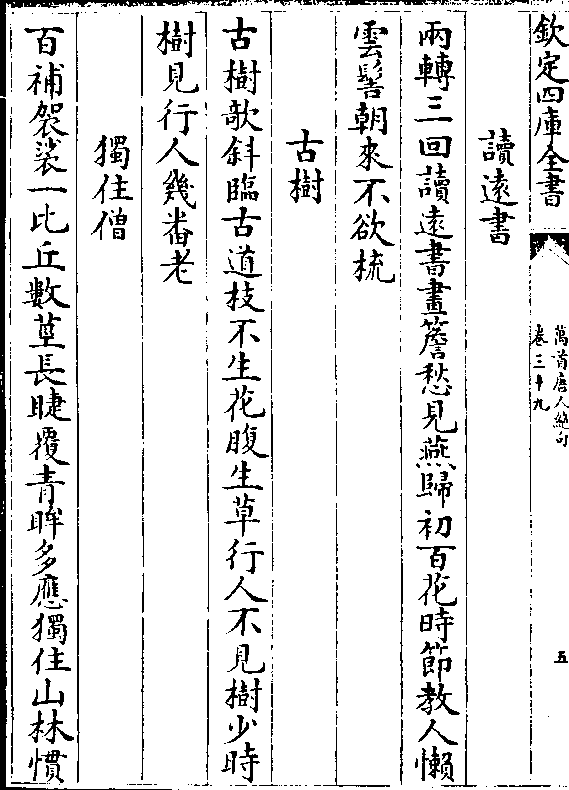 欽定四庫全書
萬首唐人絶句
卷三十九
五
讀遠書
兩轉三回讀遠書畫簷愁見燕歸初百花時節教人懶
雲髻朝來不欲梳
古樹
古樹欹斜臨古道枝不生花腹生草行人不見樹少時
樹見行人幾番老
獨住僧
百補袈裟一比丘數莖長睫覆青眸多應獨住山林慣